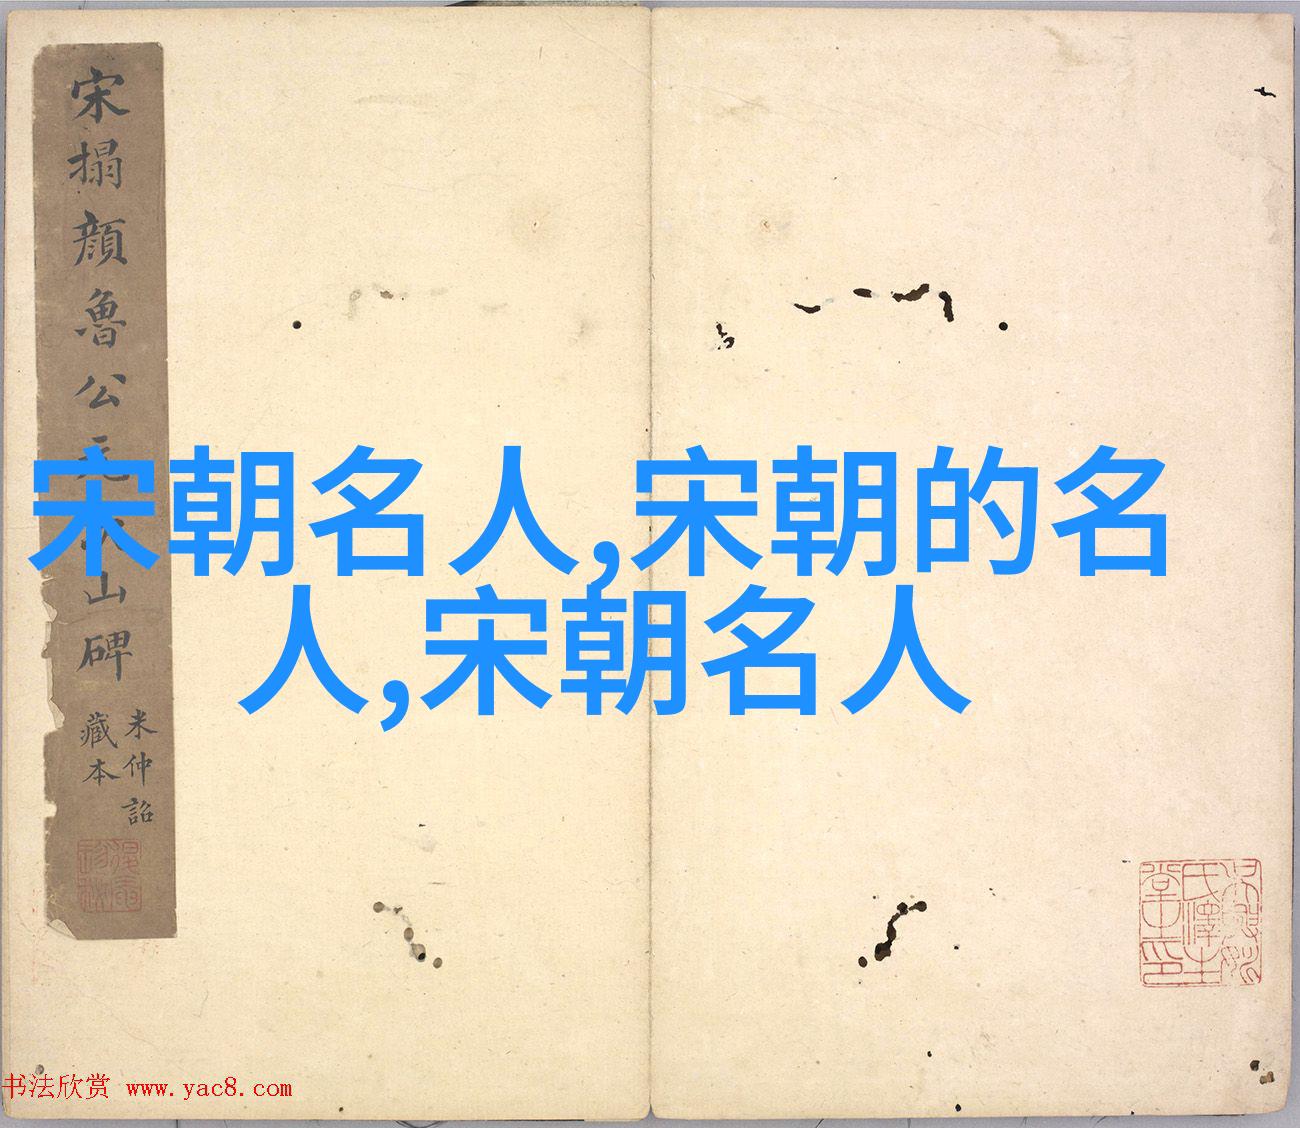 宋搨顏魯公元山碑
米仲詔
藏本
宋朝名人,宋朝的名
人,宋朝名人
书法欣赏 www.yac8.com